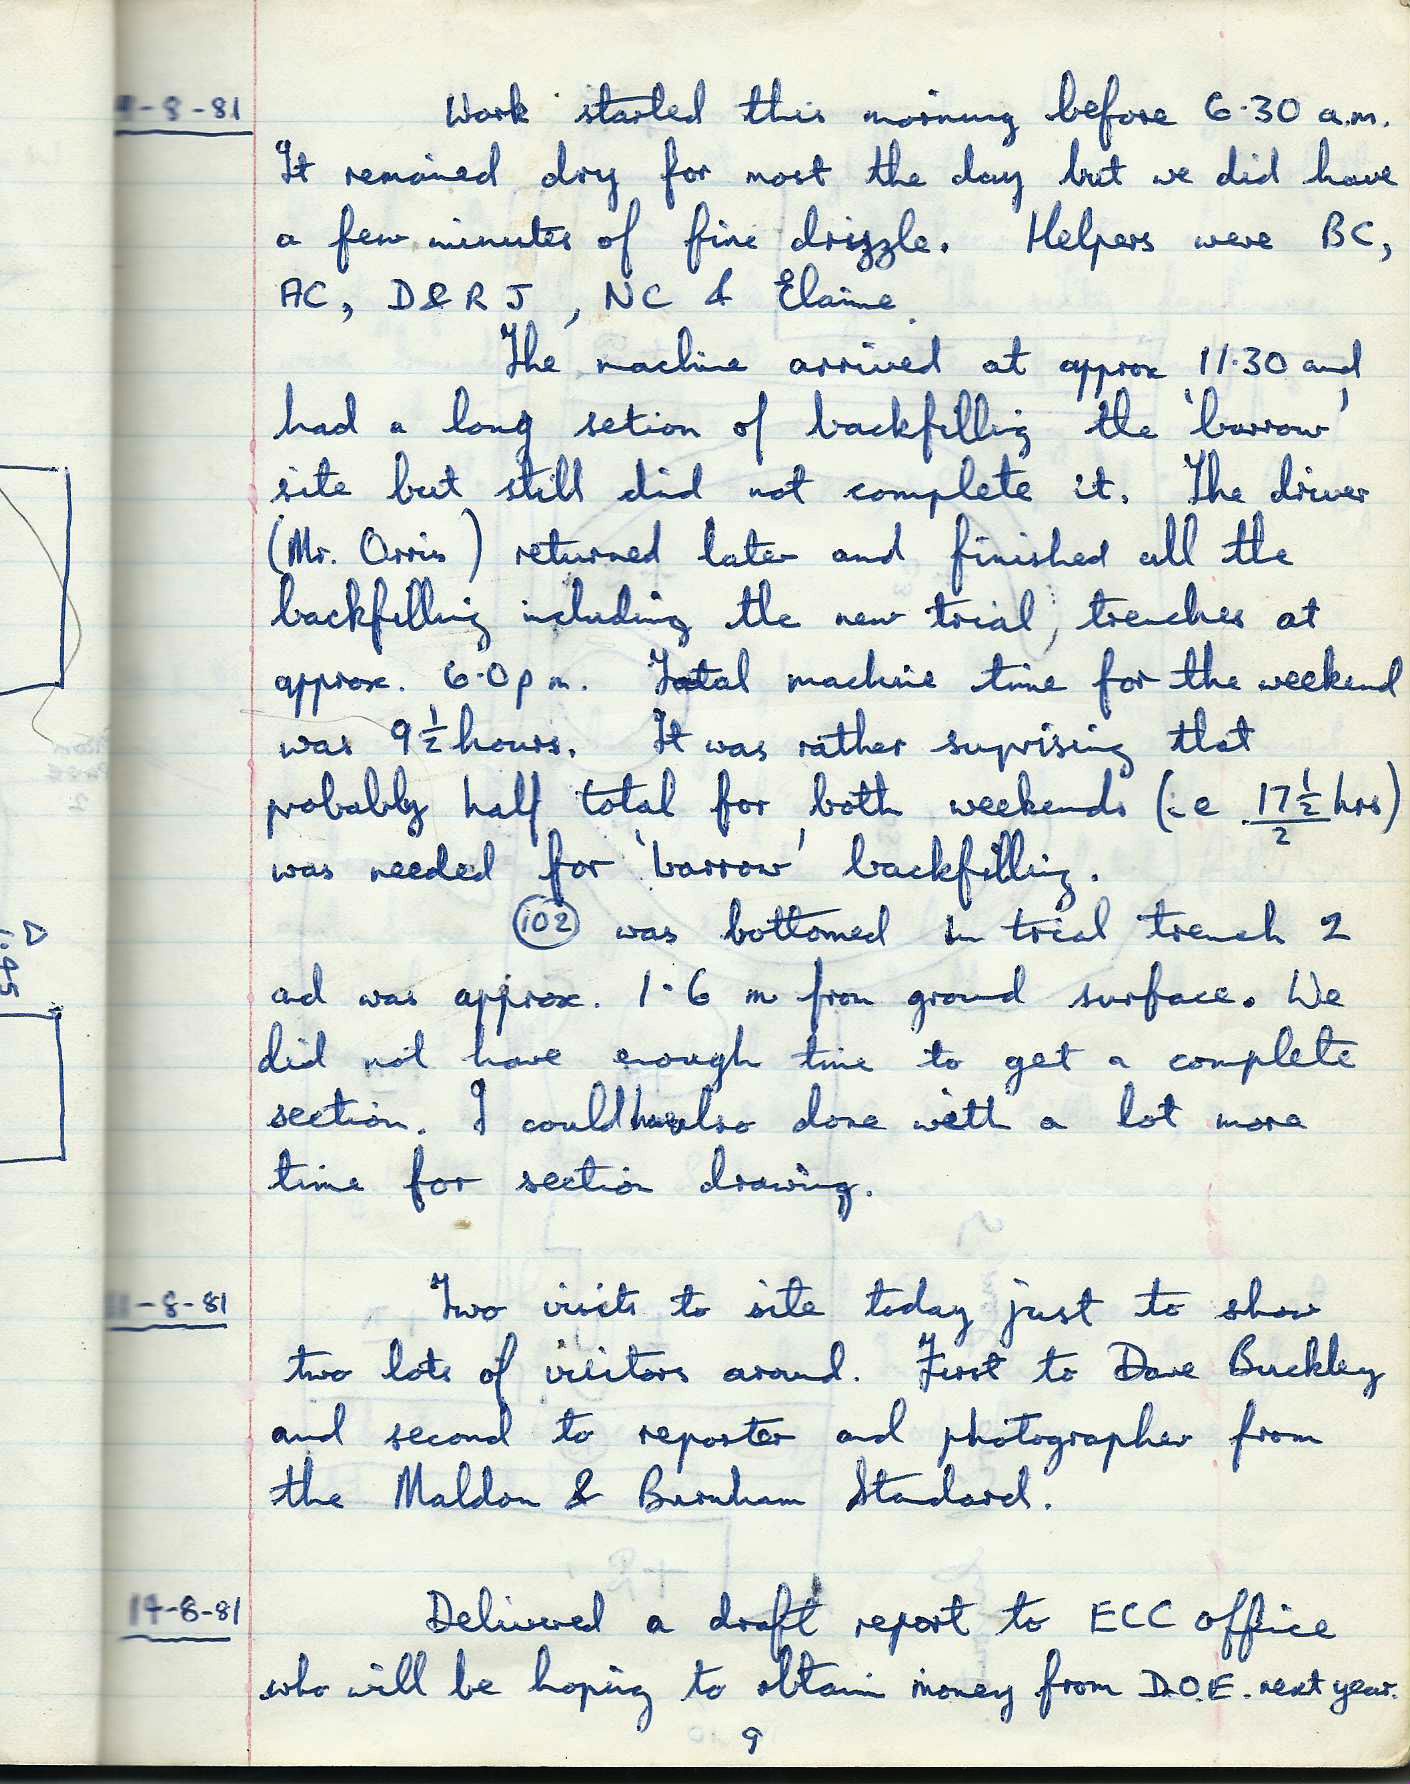 -8-81 Work started this morning before 6·30 a.m.
It remained dry for most the day but we did have
a few minutes of fine drizzle. Helpers were BC,
AC, D & R J, NC & Elaine.
The machine arrived at approx 11·30 and
had a long setion of backfilling the 'barrow'
site but still did not complete it. The driver
(Mr. Orris) returned later and finished all the
backfilling including the new trial, trenches at
approx. 6·0 pm. Total machine time for the weekend
was 9½ hours. It was rather suprising that
probably half total for both weekends (i.e 17½ hrs)
2
was needed for 'barrow' backfilling.
102 was bottomed in trial trench 2
and was approx. 1·6 m from ground surface. We
did not have enough time to get a complete
section. I could have also done with a lot more
time for section drawing.
-8-81 Two visits to site today just to show
two lots of visitors around. First to Dave Buckley
and second to reporter and photographer from
the Maldon & Burnham Standard.
14-8-81 Delivered a draft report to ECC office
who will be hoping to obtain money from D.O.E. next year.
9